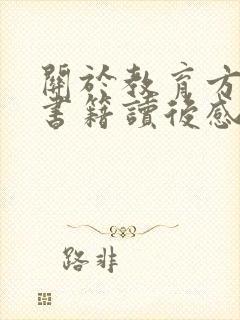 關於教育方
書籍讀後感
路非